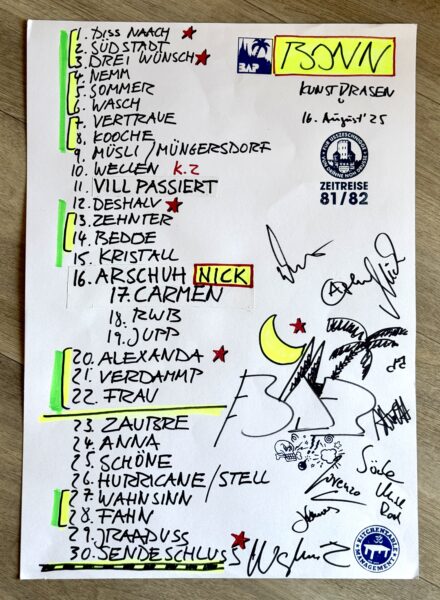 BAP
BONN
KUNST!RASEN
16. August '25
ZEITREISE
81/82
1. DISS NAACH
2. SÜDSTADT
3. DREI WÜNSCH
4. NEMM
5. SOMMER
6. WASCH
7. VERTRAUE
8. KOOCHE
9. MÜSLI/MÜNGERSDORF
10. WELLEN K.Z
11. VILL PASSIERT
12. DESHALV
13. ZEHNTER
14. BEDDE
15. KRISTALL
16. ARSCHUH NICK
17. CARMEN
18. RWB
19. JUPP
20. ALEXANDA
21. VERDAMMP
22. FRAU
23. ZAUBRE
24. ANNA
25. SCHÖNE
26. HURRICANE/STELL
27. WAHNSINN
28. FAHN
29. JRAADUSS
30. SENDESCHLUSS
BAP
KITCHENTABLE
MANAGEMENT